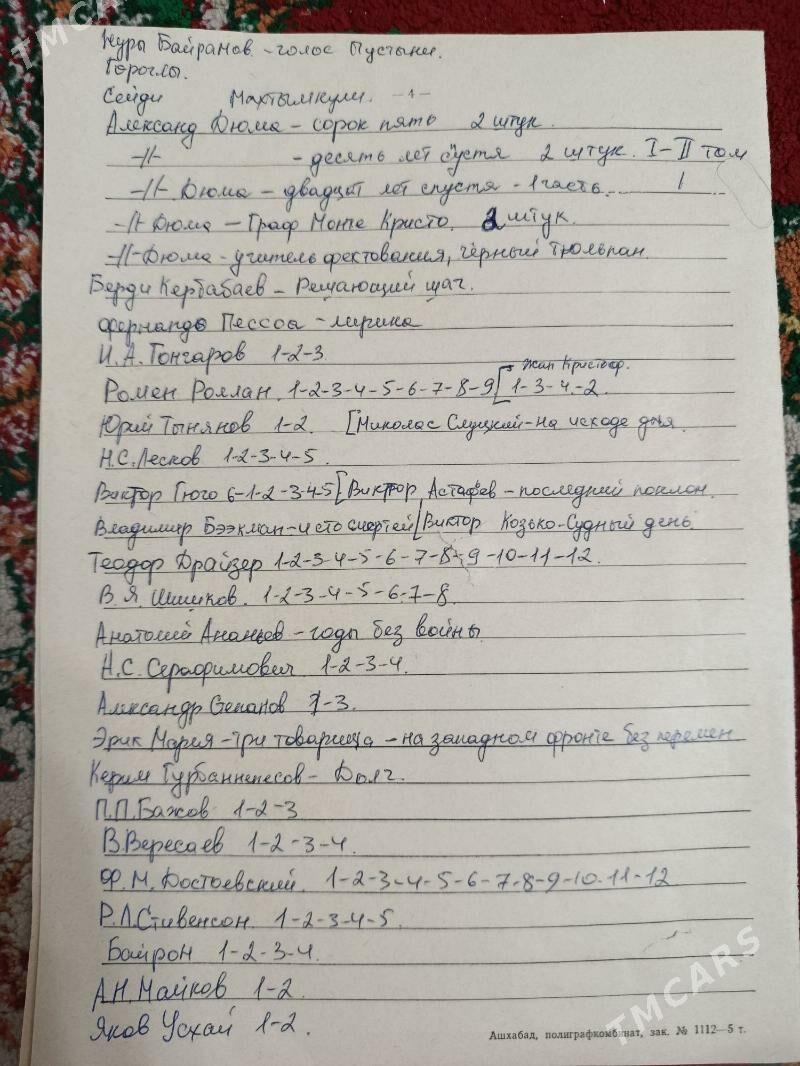 TMCARS
Нуры Байрамов - голос Пустыни.
Гороглы.
Сейди Махтымкули. -1-
Александ Дюма - сорок пять 2 штук.
-//- - десять лет спустя 2 штук. I-II том
-//- Дюма - двадцат лет спустя - 1 часть. 1
-//- Дюма - Граф Монте Кристо. 2 штук.
-//- Дюма - учитель фехтования, чёрный тюльпан.
Берди Кербабаев - Решающий шаг.
Фернандо Пессоа - лирика
И.А. Гончаров 1-2-3
Ромен Роллан. 1-2-3-4-5-6-7-8-9 [ Жан Кристоф. 1-3-4-2
Юрий Тынянов 1-2. [Миколас Слуцкий - на исходе дня.
Н.С. Лесков 1-2-3-4-5.
Виктор Гюго 6-1-2-3-4-5 [Виктор Астафев - последний поклон.
Владимир Бээкман - и сто смертей [Виктор Козько - Судный день.
Теодор Драйзер 1-2-3-4-5-6-7-8-9-10-11-12.
В.Я. Шишков. 1-2-3-4-5-6-7-8.
Анатолий Ананьев - годы без войны
Н.С. Серафимович 1-2-3-4.
Александр Степанов 1-3.
Эрик Мария - три товарища - на западном фронте без перемен
Керим Гурбаннепесов - Долг.
П.П. Бажов 1-2-3
В. Вересаев 1-2-3-4.
Ф.М. Достоевский. 1-2-3-4-5-6-7-8-9-10-11-12
Р.Л. Стивенсон. 1-2-3-4-5.
Байрон 1-2-3-4.
А.Н. Майков 1-2.
Яков Ухсай 1-2.
Ашхабад, полиграфкомбинат, зак. № 1112—5 т.
TMCARS